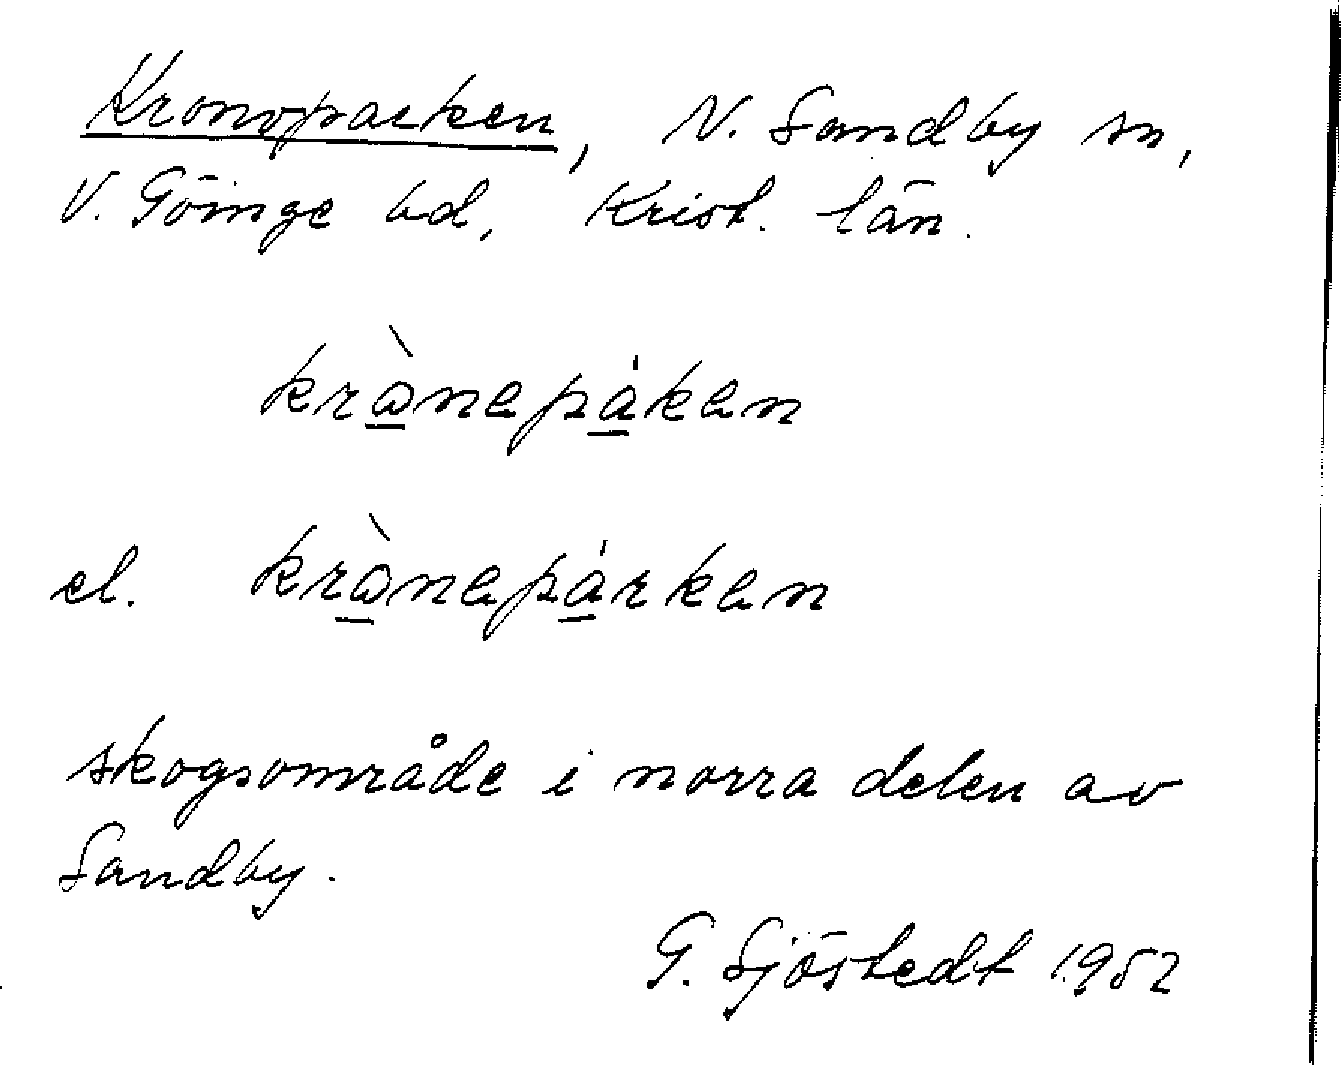 Kronoparken, N. Sandby sn,
V. Göinge hd, Krist. län.
krὼnepáken
el. krὼnepárken
skogsområde i norra delen av
Sandby.
G. Sjöstedt 1952